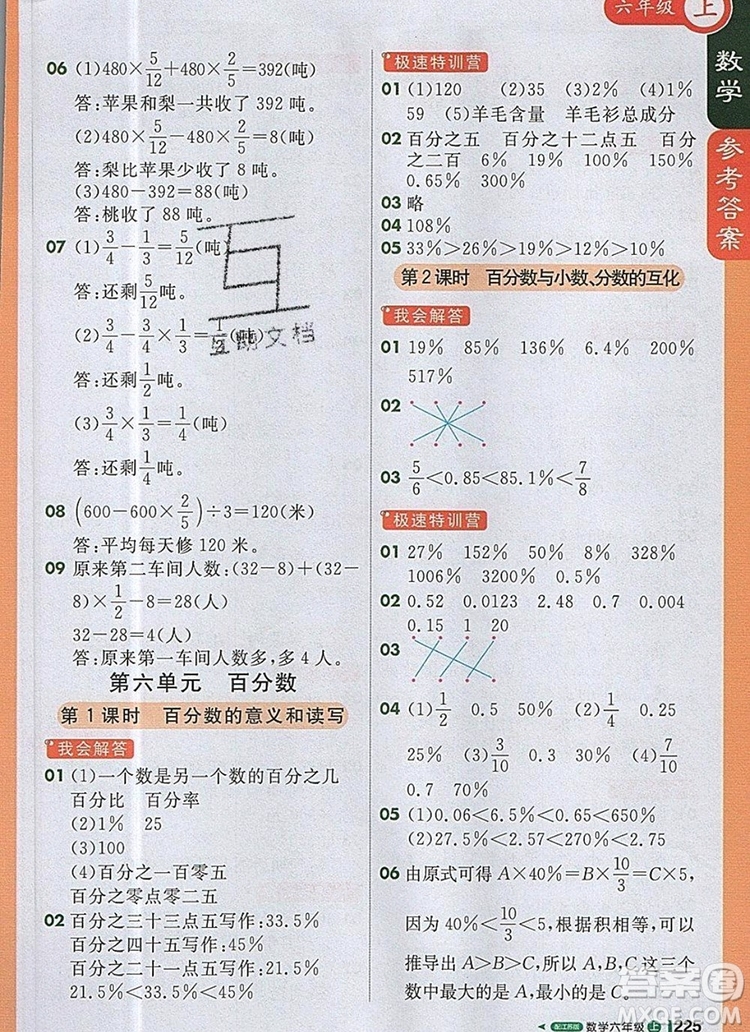 六年级 上
数学
参考答案
06 (1)480×5/12+480×2/5=392(吨)
答:苹果和梨一共收了 392 吨。
(2)480×5/12-480×2/5=8(吨)
答:梨比苹果少收了 8 吨。
(3)480-392=88(吨)
答:桃收了 88 吨。
07 (1)3/4-1/3=5/12(吨)
答:还剩5/12吨。
(2)3/4-3/4×1/3=1/2(吨)
答:还剩1/2吨。
(3)3/4×1/3=1/4(吨)
答:还剩1/4吨。
08 (600-600×2/5)÷3=120(米)
答:平均每天修 120 米。
09 原来第二车间人数:(32-8)+(32-
8)×1/2-8=28(人)
32-28=4(人)
答:原来第一车间人数多,多 4 人。
第六单元 百分数
第 1 课时 百分数的意义和读写
我会解答
01 (1)一个数是另一个数的百分之几
百分比 百分率
(2)1% 25
(3)100
(4)百分之一百零五
百分之零点零二五
02 百分之三十三点五写作:33.5%
百分之四十五写作:45%
百分之二十一点五写作:21.5%
21.5%<33.5%<45%
极速特训营
01 (1)120 (2)35 (3)2% (4)1%
59 (5)羊毛含量 羊毛衫总成分
02 百分之五 百分之十二点五 百分
之二百 6% 19% 100% 150%
0.65% 300%
03 略
04 108%
05 33%>26%>19%>12%>10%
第 2 课时 百分数与小数、分数的互化
我会解答
01 19% 85% 136% 6.4% 200%
517%
02
03 5/6<0.85<85.1%<7/8
极速特训营
01 27% 152% 50% 0.6% 38%
1006% 3200% 0.5%
02 0.52 0.0123 2.48 0.0055
0.15 1 20
03
04 (1)1/2 0.5 (2)1/4 0.25
25% (3)3/10 0.3 (4)7/10
0.7 70%
05 (1)0.06<6.5%<0.65<650%
(2)27.5%<2.7<2.75<2.8
06 由原式可得 A×40%=B×10/3=C×5,
因为 40%<10/3<5,根据积相等,可以
推导出 A>B>C,所以 A、B、C 这三个
数中最大的是 A,最小的是 C。
互朋文档
答案圈
配江苏版 数学六年级 上 225